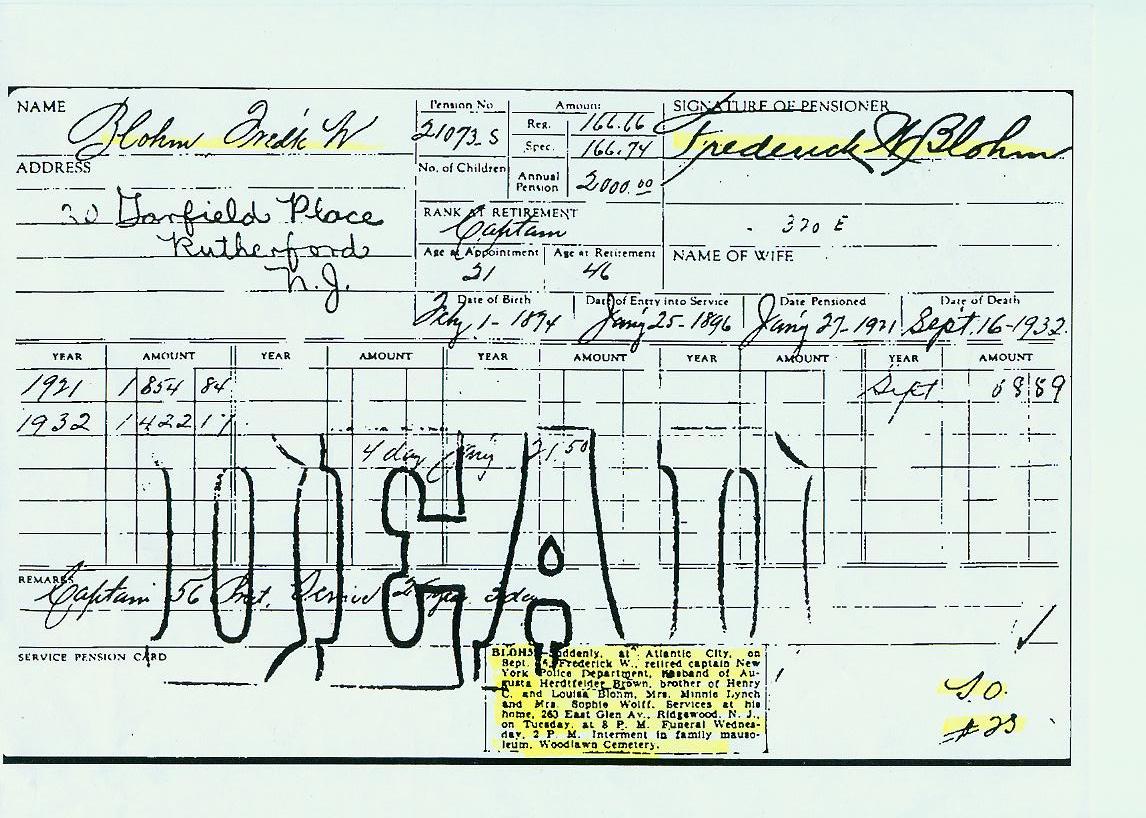 NAME Blohm Fred'k W
Pension No
21073 S
Amount
Reg. 166.66
Spec. 166.74
Annual Pension 2000.00
SIGNATURE OF PENSIONER
Frederick W Blohm
ADDRESS
30 Garfield Place
Rutherford
N.J.
No. of Children
RANK AT RETIREMENT
Captain
320 E
Age at Appointment
21
Age at Retirement
46
NAME OF WIFE
Date of Birth
Feby. 1 - 1874
Date of Entry into Service
Jan'y 25 - 1896
Date Pensioned
Jan'y 27 - 1921
Date of Death
Sept. 16 - 1932.
YEAR AMOUNT YEAR AMOUNT YEAR AMOUNT YEAR AMOUNT YEAR AMOUNT
1921 1854 84 Sept 6889
1932 1422 17
4 day Jan'y 21.50
DEAD
REMARKS
Captain 56 Prct. Service days
SERVICE PENSION CARD
BLOHM—Suddenly, at Atlantic City, on
Sept. Frederick W., retired captain New
York Police Department, husband of Au-
gusta Herdtfelder Brown, brother of Henry
C. and Louisa Blohm, Mrs. Minnie Lynch
and Mrs. Sophie Wolff. Services at his
home, 263 East Glen Av., Ridgewood, N. J.,
on Tuesday, at 8 P. M. Funeral Wednes-
day, 2 P. M. Interment in family mauso-
leum, Woodlawn Cemetery.
S.O.
#23